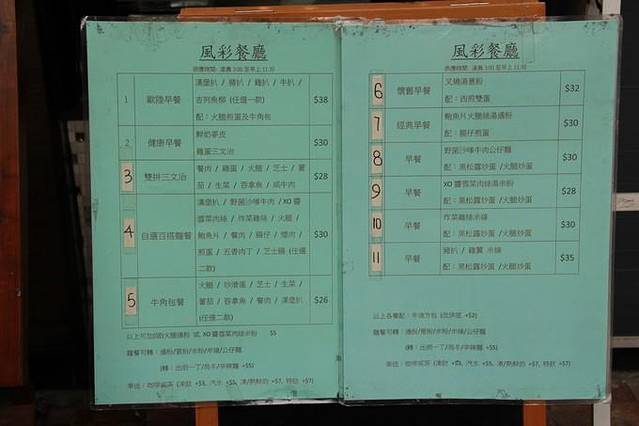 風彩餐廳
供應時間: 凌晨 3:00 至早上 11:30
1
歐陸早餐
漢堡扒 / 豬扒 / 雞扒 / 牛扒 /
吉列魚柳 (任選一款)
配:火腿煎蛋及牛角包
$38
2
健康早餐
鮮奶麥皮
雞蛋三文治
$30
3
雙拼三文治
餐肉 / 雞蛋 / 火腿 / 芝士 / 蕃
茄 / 生菜 / 吞拿魚 / 咸牛肉
$28
4
自選百搭麵餐
漢堡扒 / 野菌沙嗲牛肉 / XO 醬
雪菜肉絲 / 炸菜雞絲 / 火腿 /
鮑魚片 / 餐肉 / 腸仔 / 煙肉 /
煎蛋 / 五香肉丁 / 芝士腸 (任選
二款)
$30
5
牛角包餐
火腿 / 炒滑蛋 / 芝士 / 生菜 /
蕃茄 / 吞拿魚 / 餐肉 / 漢堡扒
(任選二款)
$26
以上可加配火腿通粉 或 XO 醬雪菜肉絲米粉 $5
麵餐可轉:通粉/意粉/米粉/米線/公仔麵
(轉:出前一丁/烏冬/辛辣麵 +$5)
奉送:咖啡或茶 (凍飲 +$3, 汽水 +$5, 凍/熱鮮奶 +$7, 特飲 +$7)
風彩餐廳
供應時間: 凌晨 3:00 至早上 11:30
6
懷舊早餐
叉燒湯意粉
配:西煎雙蛋
$32
7
經典早餐
鮑魚片火腿絲湯通粉
配:腸仔煎蛋
$30
8
早餐
野菌沙嗲牛肉公仔麵
配:黑松露炒蛋 /火腿炒蛋
$30
9
早餐
XO 醬雪菜肉絲湯米粉
配:黑松露炒蛋 /火腿炒蛋
$28
10
早餐
炸菜雞絲米線
配:黑松露炒蛋 /火腿炒蛋
$30
11
早餐
豬扒 / 雞翼 米線
配:黑松露炒蛋 /火腿炒蛋
$35
以上各餐配:牛油方包 (改排底 +$2)
麵餐可轉:通粉/意粉/米粉/米線/公仔麵
(轉:出前一丁/烏冬/辛辣麵 +$5)
奉送:咖啡或茶 (凍飲 +$3, 汽水 +$5, 凍/熱鮮奶 +$7, 特飲 +$7)